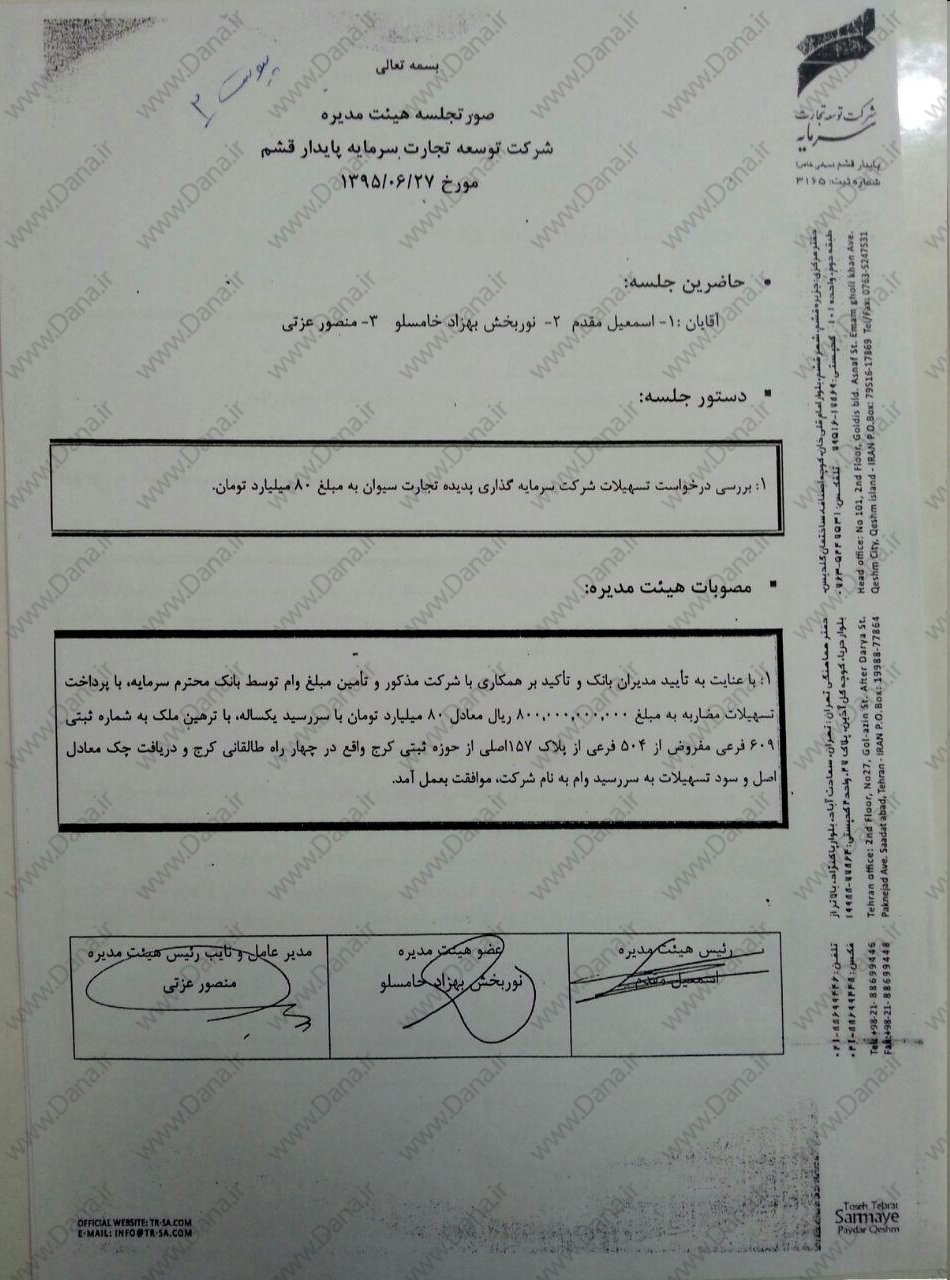 بسمه تعالی
پیوست ۳
صورتجلسه هیئت مدیره
شرکت توسعه تجارت سرمایه پایدار قشم
مورخ ۱۳۹۵/۰۶/۲۷
شرکت توسعه تجارت
سرمایه
پایدار قشم (سهامی خاص)
شماره ثبت: ۳۱۶۵
• حاضرین جلسه:
آقایان :۱- اسمعیل مقدم ۲- نوربخش بهزاد خامسلو ۳- منصور عزتی
▪ دستور جلسه:
۱: بررسی درخواست تسهیلات شرکت سرمایه گذاری پدیده تجارت سیوان به مبلغ ۸۰ میلیارد تومان.
▪ مصوبات هیئت مدیره:
۱: با عنایت به تأیید مدیران بانک و تأکید بر همکاری با شرکت مذکور و تأمین مبلغ وام توسط بانک محترم سرمایه، با پرداخت
تسهیلات مضاربه به مبلغ ۸۰۰,۰۰۰,۰۰۰,۰۰۰ ریال معادل ۸۰ میلیارد تومان با سررسید یکساله، با ترهین ملک به شماره ثبتی
۶۰۹ فرعی مفروض از ۵۰۴ فرعی از پلاک ۱۵۷اصلی از حوزه ثبتی کرج واقع در چهار راه طالقانی کرج و دریافت چک معادل
اصل و سود تسهیلات به سررسید وام به نام شرکت، موافقت بعمل آمد.
رئیس هیئت مدیره
اسمعیل مقدم
عضو هیئت مدیره
نوربخش بهزاد خامسلو
مدیر عامل و نایب رئیس هیئت مدیره
منصور عزتی
دفتر مرکزی: جزیره قشم، شهر قشم، بلوار امام قلی خان، کوچه اصناف، ساختمان گلدیس،
طبقه دوم، واحد ۱۰۱ کدپستی: ۱۷۸۶۹-۷۹۵۱۶ تلفکس: ۵۲۴۷۵۳۱-۰۷۶۳
Head office: No 101, 2nd Floor, Goldis bld. Asnaf St. Emam gholi khan Ave.
Qeshm City, Qeshm island - IRAN P.O.Box: 79516-17869 Tel/Fax: 0763-5247531
دفتر هماهنگی تهران: تهران، سعادت آباد، بلوار پاکنژاد، بالاتر از
بلوار دریا، کوچه گل آذین، پلاک ۲۷، واحد ۲ کدپستی: ۷۷۸۶۴-۱۹۹۸۸
Tehran office: 2nd Floor, No27, Gol-azin St. After Darya St.
Paknejad Ave. Saadat abad, Tehran - IRAN P.O. Box: 19988-77864
تلفن: ۸۸۶۹۹۴۴۶-۰۲۱
فکس: ۸۸۶۹۹۴۴۸-۰۲۱
Tel: +98-21- 88699446
Fax: +98-21- 88699448
OFFICIAL WEBSITE: TR-SA.COM
E-MAIL: INFO@TR-SA.COM
Toseh Tejarat
Sarmaye
Paydar Qeshm
www.Dana.ir